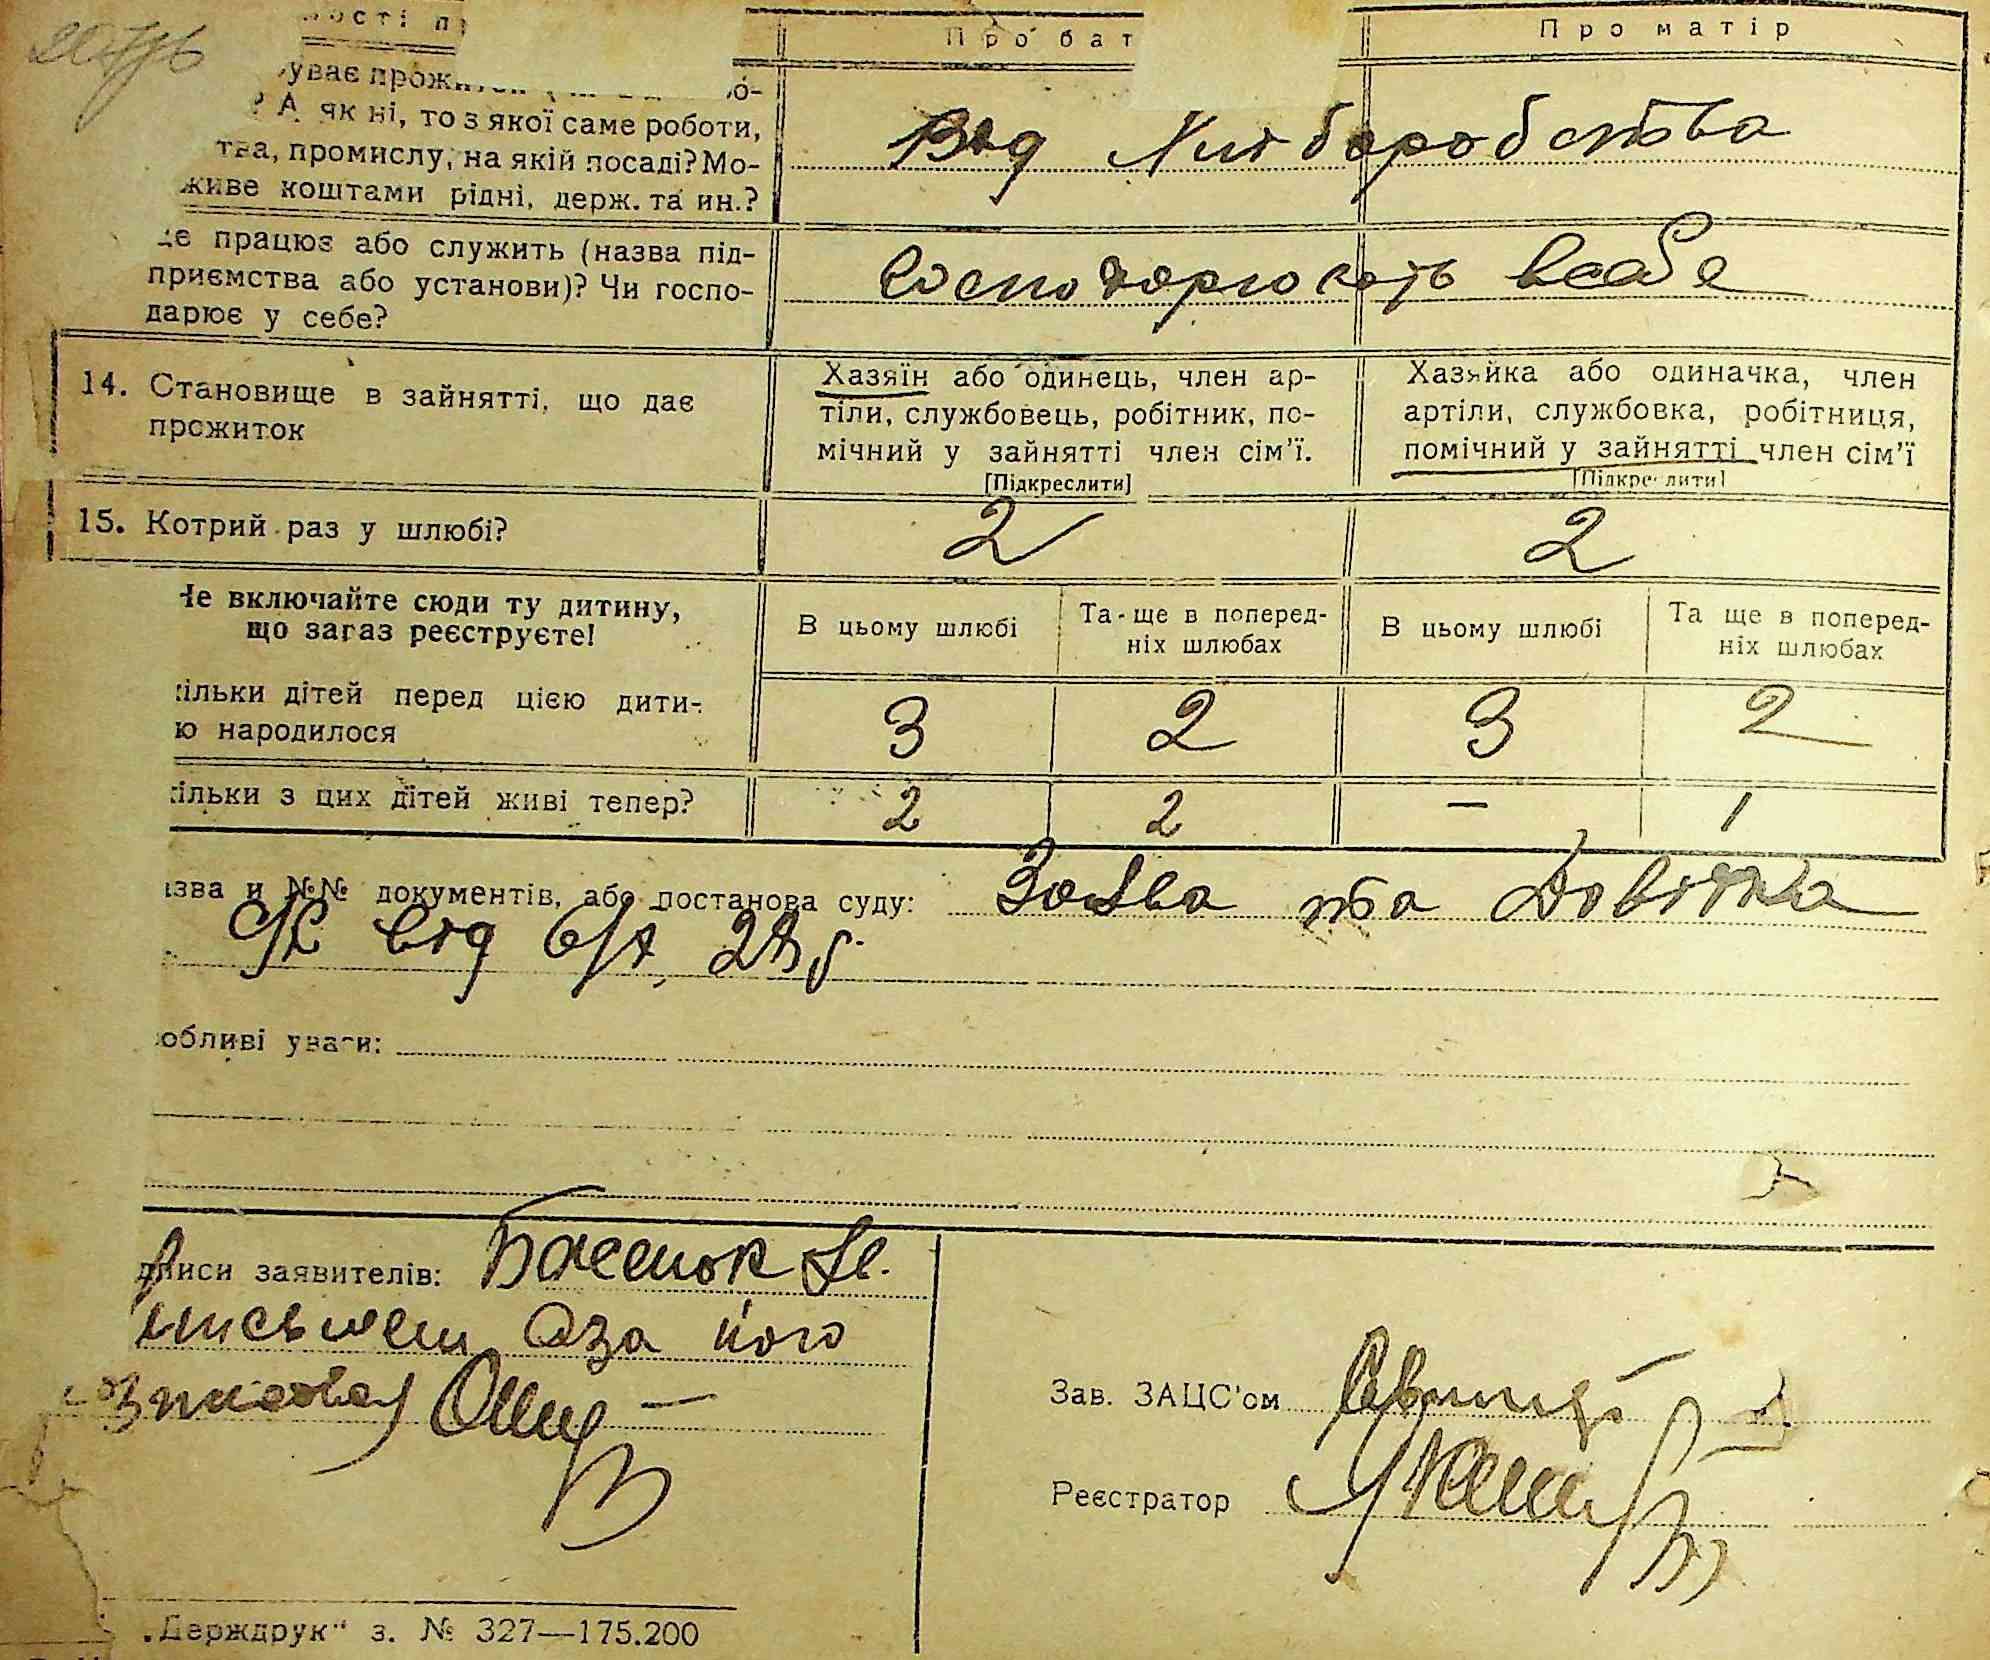 Про бат
Про матір
уває прожи
? А як ні, то з якої саме роботи,
тва, промислу, на якій посаді? Мо-
живе коштами рідні, держ. та ин.?
Від Хліборобства
де працює або служить (назва під-
приємства або установи)? Чи госпо-
дарює у себе?
Господарюють всебе
14. Становище в зайнятті, що дає
прожиток
Хазяїн або одинець, член ар-
тіли, службовець, робітник, по-
мічний у зайнятті член сім'ї.
[Підкреслити]
Хазяйка або одиначка, член
артіли, службовка, робітниця,
помічний у зайнятті член сім'ї
[Підкреслити]
15. Котрий раз у шлюбі?
2 2
Не включайте сюди ту дитину,
що зараз реєструєте!
В цьому шлюбі
Та ще в поперед-
ніх шлюбах
В цьому шлюбі
Та ще в поперед-
ніх шлюбах
ільки дітей перед цією дити-
ю народилося
3 2 3 2
ільки з цих дітей живі тепер?
2 2 — 1
азва и №№ документів, або постанова суду: Заява та Довідка
С/Р від
обливі уваги:
дписи заявителів:
його
Зав. ЗАЦС'ом
Реєстратор
„Держдрук“ з. № 327—175.200